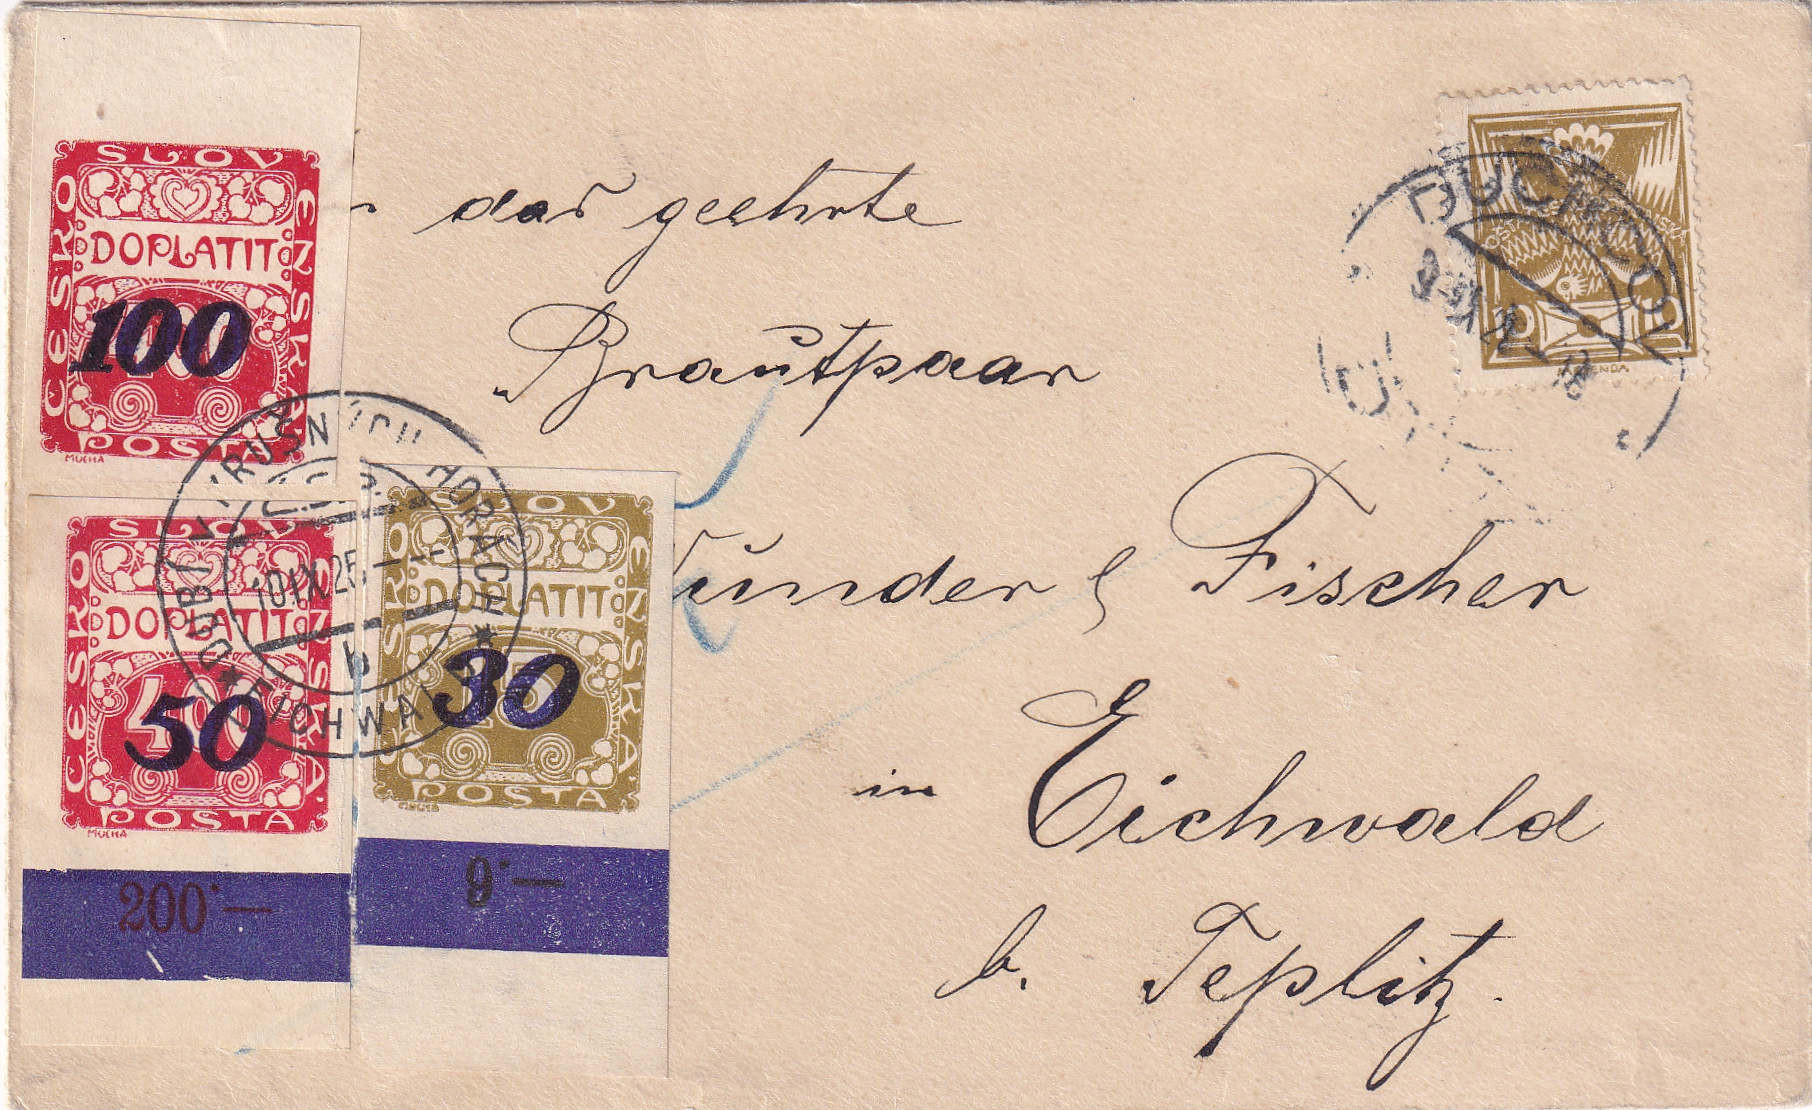 ČESKO SLOV ENSKÁ
DOPLATIT
100
POŠTA
MUCHA
ČESKO SLOV ENSKÁ
DOPLATIT
50
400
POŠTA
MUCHA
200·—
ČESKO SLOV ENSKÁ
DOPLATIT
30
POŠTA
MUCHA
9·—
DUBÍ V KRUŠNÝCH HORÁCH
Č.S.P.
10 IX 25
b
EICHWALD
DUCHCOV
das geehrte
Brautpaar
Wunder & Fischer
in Eichwald
b. Teplitz.